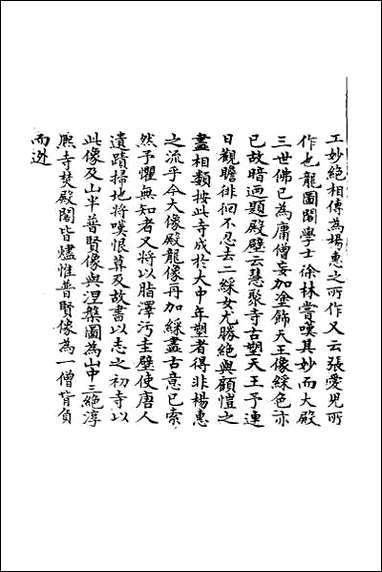 工妙絕相傳為楊惠之所作又云張愛兒所
作也龍圖閣學士徐林嘗嘆其妙而大殿
三世佛已為庸僧妄加塗飾天王像綵色亦
已故暗迺題殿壁云慧聚寺古塑天王予連
日觀瞻徘徊不忍去二綵女尤勝絕與顧愷之
畫相類按此寺成於大中年塑者得非楊惠
之流乎今大像殿龍像再加綵畫古意已索
然予懼無知者又將以脂澤污圭壁使唐人
遺蹟掃地將嘆恨莫及故書以志之初寺以
此像及山半普賢像與涅槃圖為山中三絕淳
熈寺焚殿閣皆燼惟普賢像為一僧背負
而迯